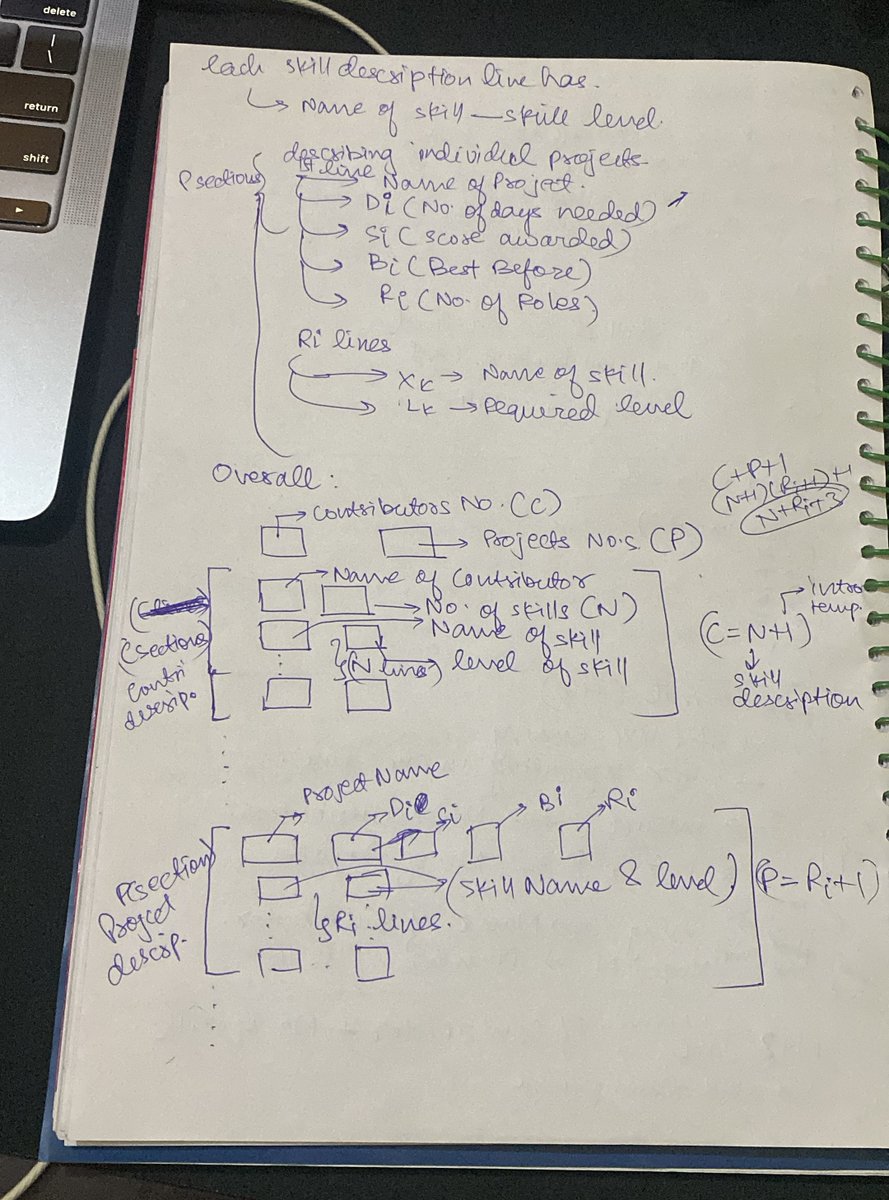 delete
|
\
return
shift
Each skill description line has.
↳ Name of skill — skill level.
describing individual projects
P sections
1st line
→ Name of Project.
→ Di (No. of days needed)
→ Si (score awarded)
→ Bi (Best Before)
→ Ri (No. of Roles)
Ri lines
→ XK → Name of skill.
→ LK → Required level
Overall :
C+P+1
(N+1)(Ri+1)+1
N+Ri+3
→ Contributors No. (C)
→ Projects No.s. (P)
→ Name of Contributor
→ No. of skills (N)
Name of skill
(N lines) level of skill
C sections
Contri
descrip.
(C=N+1)
intro
temp.
skill
description
Project Name
Di
Si
Bi
Ri
P section
Project
descrip.
(Skill Name & level)
(P=Ri+1)
Ri lines.